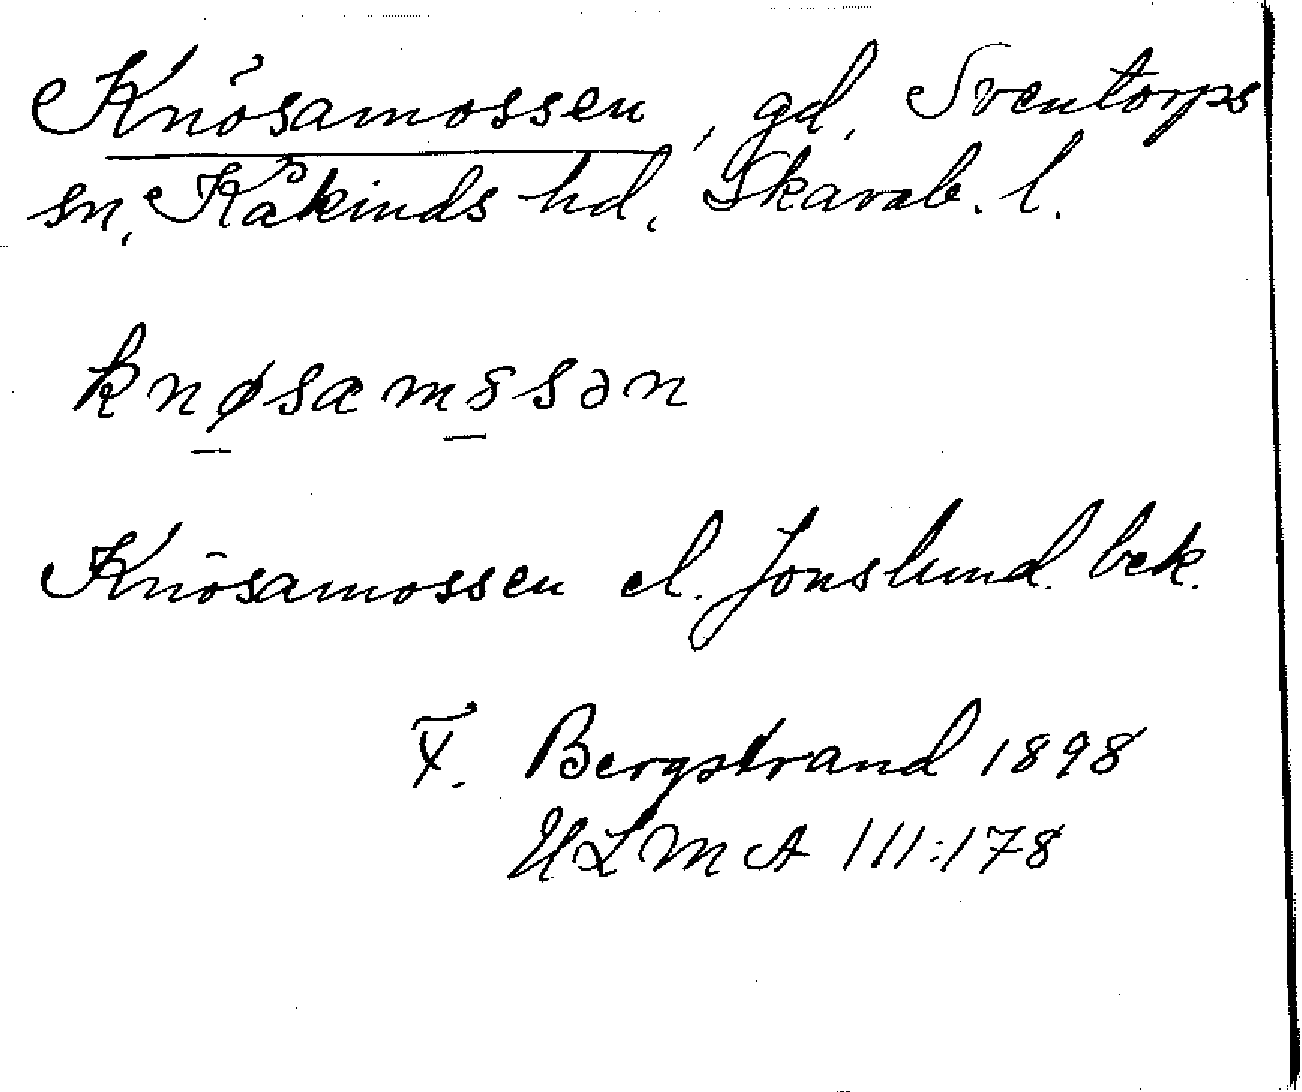 Knösamossen, gd, Sventorps
sn, Kåkinds hd, Skarab. l.
knøsamåsən
Knösamossen el. Jonslund. bek.
F. Bergstrand 1898
ULMA 111:178